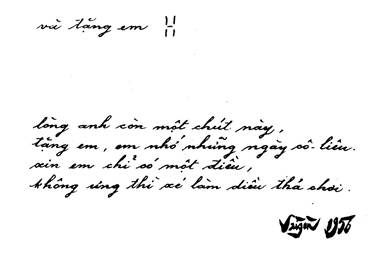 và tặng em H
lòng anh còn một chút này,
tặng em, em nhớ những ngày cô-liêu.
xin em chỉ có một điều,
không ưng thì xé làm diều thả chơi.
1956